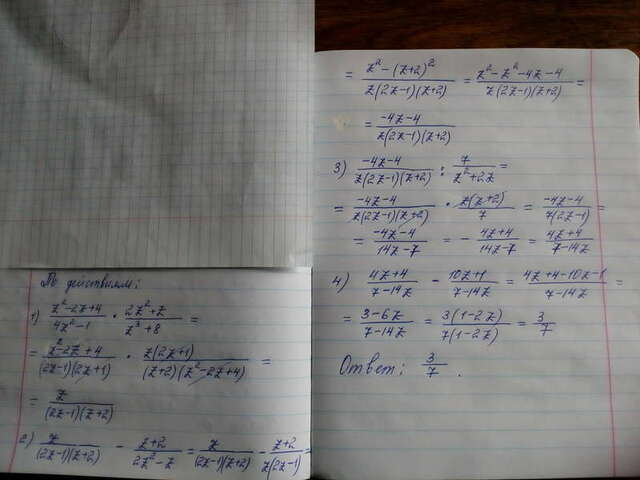 По действиям:
1) (z²-2z+4)/(4z²-1) · (2z²+z)/(z³+8) =
= (z²-2z+4)/((2z-1)(2z+1)) · z(2z+1)/((z+2)(z²-2z+4)) =
= z/((2z-1)(z+2))
2) z/((2z-1)(z+2)) - (z+2)/(2z²-z) = z/((2z-1)(z+2)) - (z+2)/(z(2z-1)) =
= (z²-(z+2)²)/(z(2z-1)(z+2)) = (z²-z²-4z-4)/(z(2z-1)(z+2)) =
= (-4z-4)/(z(2z-1)(z+2))
3) (-4z-4)/(z(2z-1)(z+2)) : 7/(z²+2z) =
= (-4z-4)/(z(2z-1)(z+2)) · z(z+2)/7 = (-4z-4)/(7(2z-1)) =
= (-4z-4)/(14z-7) = - (4z+4)/(14z-7) = (4z+4)/(7-14z)
4) (4z+4)/(7-14z) - (10z+1)/(7-14z) = (4z+4-10z-1)/(7-14z) =
= (3-6z)/(7-14z) = 3(1-2z)/(7(1-2z)) = 3/7
Ответ: 3/7.